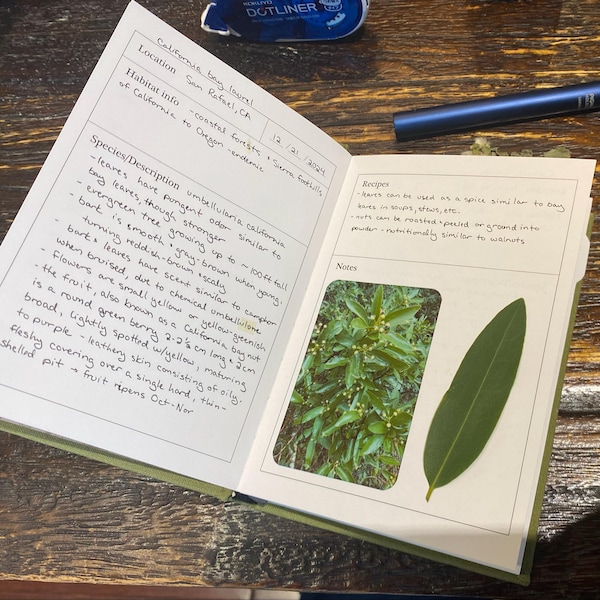 KOKUYO
DOTLINER
California bay laurel
Location San Rafael, CA
12/21/2024
Habitat info - coastal forests, + Sierra foothills
of California to Oregon - endemic
Species/Description umbellularia california
- leaves have pungent odor similar to
bay leaves, though stronger
- evergreen tree growing up to ~100ft tall
- bark is smooth + gray-brown when young,
turning reddish-brown + scaly
- bark + leaves have scent similar to camphor
when bruised, due to chemical umbellulone
- flowers are small yellow or yellow-greenish
- the fruit, also known as a California bay nut
is a round green berry 2-2½ cm long + 2cm
broad, lightly spotted w/yellow, maturing
to purple - leathery skin consisting of oily,
fleshy covering over a single hard, thin-
shelled pit → fruit ripens Oct-Nov
Recipes
- leaves can be used as a spice similar to bay
leaves in soups, stews, etc.
- nuts can be roasted + peeled or ground into
powder - nutritionally similar to walnuts
Notes